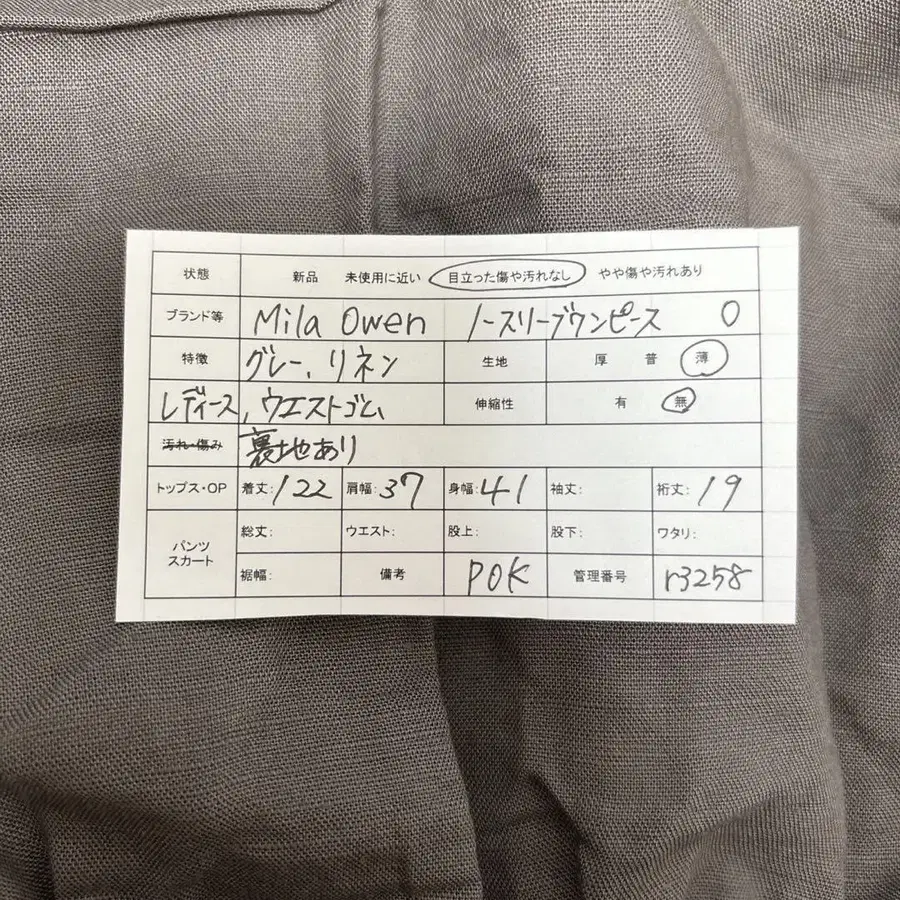 状態 新品 未使用に近い 目立った傷や汚れなし やや傷や汚れあり
ブランド等 Mila Owen ノースリーブワンピース 0
特徴 グレー、リネン 生地 厚 普 薄
レディース、ウエストゴム 伸縮性 有 無
汚れ・傷み 裏地あり
トップス・OP 着丈:122 肩幅:37 身幅:41 袖丈: 裄丈:19
パンツ スカート 総丈: ウエスト: 股上: 股下: ワタリ:
裾幅: 備考 POK 管理番号 r3258